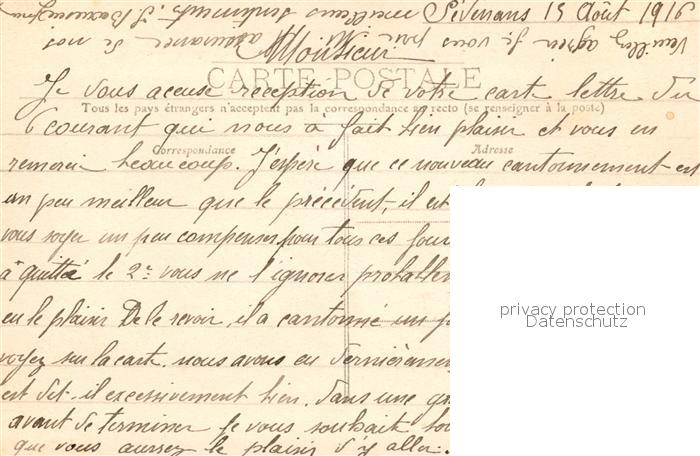 Sévenans 15 Août 1916
Monsieur
CARTE POSTALE
Je vous accuse reception de votre carte lettre du
Tous les pays étrangers n'acceptent pas la correspondance au recto (se renseigner à la poste)
6 courant qui nous à fait bien plaisir et vous en
Correspondance
Adresse
remerci beaucoup. J'éspére que ce nouveau cantonnement est
un peu meilleur que le précédent, il est
vous soyez un peu compenser pour tous ces
à quitté le 2e vous ne l'ignorez
eu le plaisir De le revoir, il a cantonné un
voyez sur la carte. nous avons eu dernièrement
est dit-il excessivement bien. dans une
avant de terminer je vous souhaite
que vous aurrez le plaisir d'y aller.
Veuillez agréer Je vous prie assurance de nos
meilleurs sentiments.
privacy protection
Datenschutz